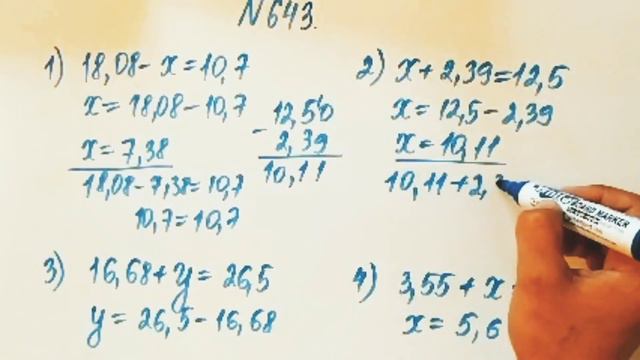 N643.
1) 18,08 - x = 10,7
x = 18,08 - 10,7
x = 7,38
18,08 - 7,38 = 10,7
10,7 = 10,7
12,50
- 2,39
10,11
2) x + 2,39 = 12,5
x = 12,5 - 2,39
x = 10,11
10,11 + 2,3
3) 16,68 + y = 26,5
y = 26,5 - 16,68
4) 3,55 + x
x = 5,6
BOARD MARKER